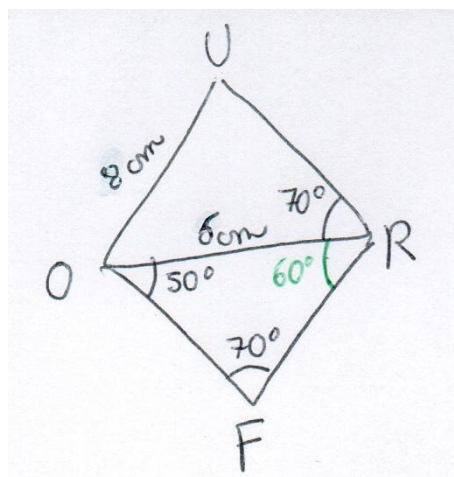 U
8 cm
70°
6cm
R
O
50°
60°
70°
F